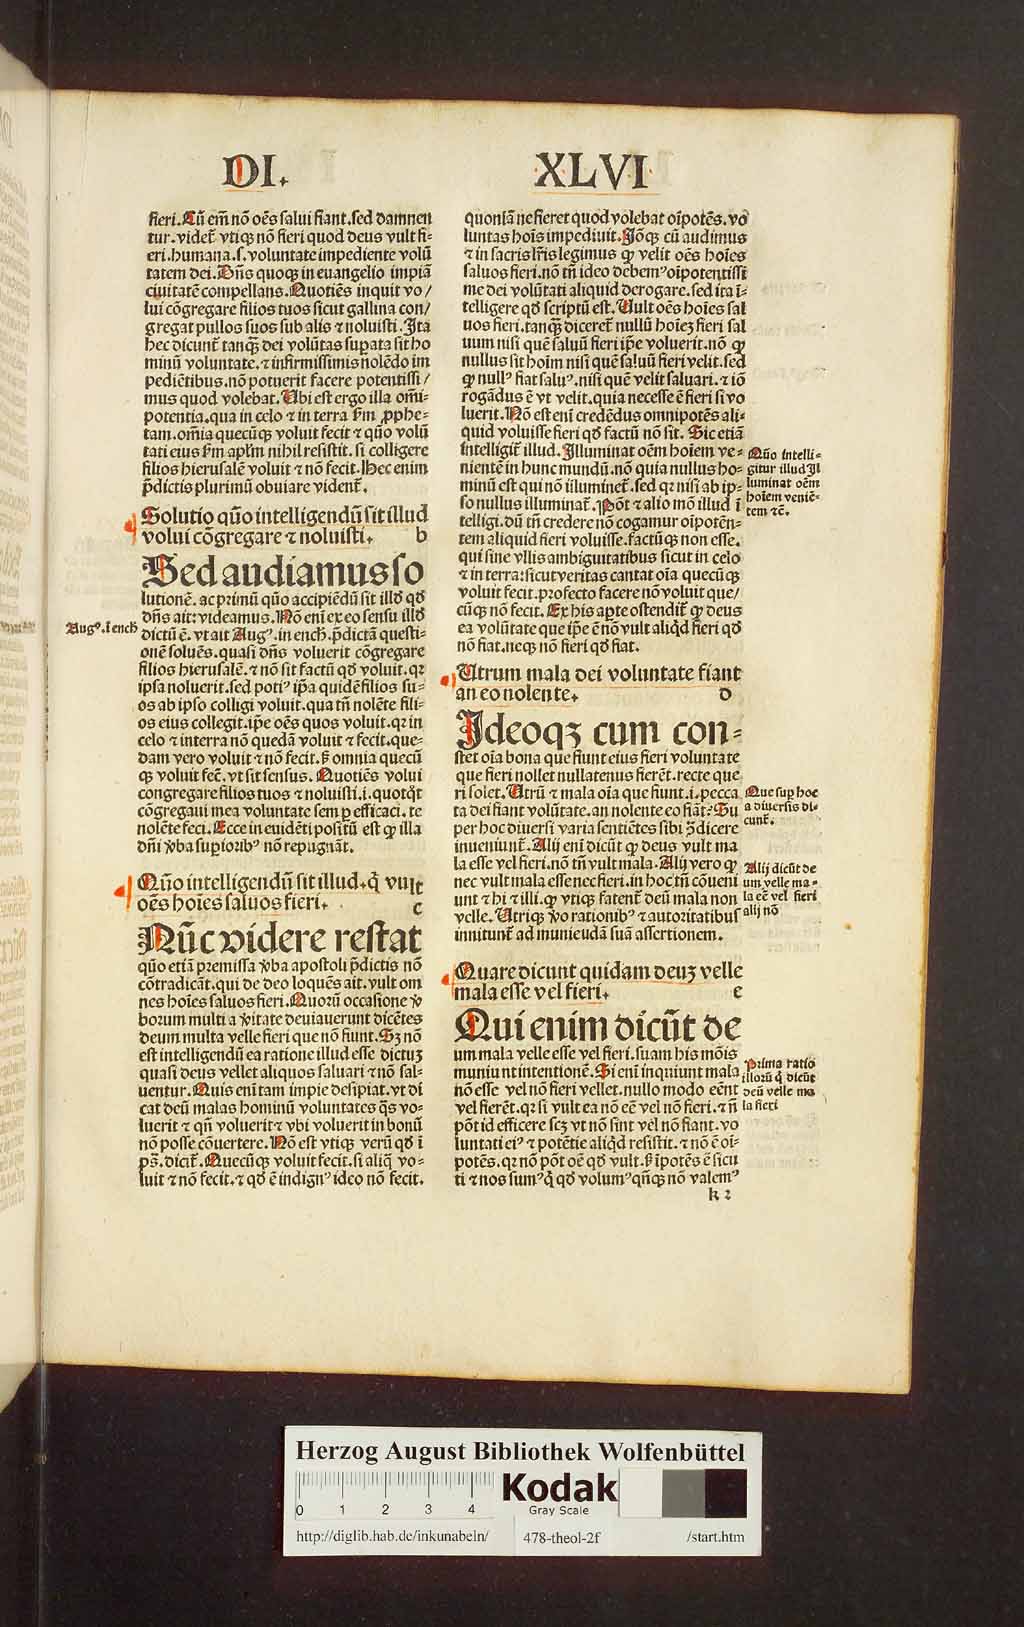 DI. XLVI
fieri. Cū em̄ nō oēs salui fiant. sed damnen
tur. videt̄ vtiqꝫ nō fieri quod deus vult fi⸗
eri. humana .s. voluntate impediente volū
tatem dei. Dn̄s quoqꝫ in euangelio impiā
ciuitatē compellans. Quotiēs inquit vo/
lui cōgregare filios tuos sicut gallina con/
gregat pullos suos sub alis ⁊ noluisti. Ita
hec dicunt̄ tanqꝫ̄ dei volūtas suꝑata sit ho
minū voluntate. ⁊ infirmissimis nolēdo im
pediētibus. nō potuerit facere potentissi/
mus quod volebat. Ubi est ergo illa om̄i⸗
potentia. qua in celo ⁊ in terra ẜm ꝓphe⸗
tam. om̄ia quecūqꝫ voluit fecit ⁊ quō volū
tati eius ẜm apl̄m nihil resistit. si colligere
filios hierusalē voluit ⁊ nō fecit. Hec enim
p̄dictis plurimū obuiare vident̄.
Solutio quō intelligendū sit illud
volui cōgregare ⁊ noluisti. b
Sed audiamus so
lutionē. ac primū quō accipiēdū sit illd̓ qd̓
dn̄s ait: videamus. Nō eni ex eo sensu illd̓
Augꝰ. ī ench
dictū ē. vt ait Augꝰ. in ench. p̄dictā questi⸗
onē soluēs. quasi dn̄s voluerit cōgregare
filios hierusalē. ⁊ nō sit factū qd̓ voluit. qꝛ
ipsa noluerit. sed potiꝰ ip̄a quidē filios su⸗
os ab ipso colligi voluit. qua tn̄ nolēte fili⸗
os eius collegit. ip̄e oēs quos voluit. qꝛ in
celo ⁊ in terra nō quedā voluit ⁊ fecit. que⸗
dam vero voluit ⁊ nō fecit. ẜ omnia quecū
qꝫ voluit fec̄. vt sit sensus. Quotiēs volui
congregare filios tuos ⁊ noluisti .i. quotqt̓
cōgregaui mea voluntate semꝑ efficaci. te
nolēte feci. Ecce in euidēti positū est qꝫ illa
dn̄i v̓ba suꝑioribꝰ nō repugnāt.
Quō intelligendū sit illud. q̄ vult
oēs hoīes saluos fieri. c
Nūc videre restat
quō etiā premissa v̓ba apostoli p̄dictis nō
cōtradicāt. qui de deo loquēs ait. vult om
nes hoīes saluos fieri. Quorū occasione v̓
borum multi a v̓itate deuiauerunt dicētes
deum multa velle fieri que nō fiunt. Sꝫ nō
est intelligendū ea ratione illud esse dictuꝫ
quasi deus vellet aliquos saluari ⁊ nō sal⸗
uentur. Quis eni tam impie desipiat. vt di
cat deū malas hominū voluntates q̄s vo⸗
luerit ⁊ qn̄ voluerit ⁊ vbi voluerit in bonū
nō posse cōuertere. Nō est vtiqꝫ verū qd̓ ī
ps̄. dicit̄. Quecūqꝫ voluit fecit. si aliq̄ vo⸗
luit ⁊ nō fecit. ⁊ qd̓ ē indignꝰ ideo nō fecit.
quoniā ne fieret quod volebat oīpotēs. vo
luntas hoīs impediuit. Iōqꝫ cū audimus
⁊ in sacris lr̄is legimus qꝫ velit oēs hoīes
saluos fieri. nō tn̄ ideo debemꝰ oīpotentissi
me dei volūtati aliquid derogare. sed ita ī⸗
telligere qd̓ scriptū est. Uult oēs hoīes sal
uos fieri. tanqꝫ̄ diceret̄ nullū hoīeꝫ fieri sal
uum nisi quē saluū fieri ip̄e voluerit. nō qꝫ
nullus sit hoīm nisi quē saluū fieri velit. sed
qꝫ nullꝰ fiat saluꝰ. nisi quē velit saluari. ⁊ iō
rogādus ē vt velit. quia necesse ē fieri si vo
luerit. Nō est eni credēdus omnipotēs ali⸗
quid voluisse fieri qd̓ factū nō sit. Sic etiā
intelligit̄ illud. Illuminat oēm hoīem ve⸗
nientē in hunc mundū. nō quia nullus ho⸗
minū est qui nō illuminet̄. sed qꝛ nisi ab ip⸗
so nullus illuminat̄. Pōt ⁊ alio mō illud ī
telligi. dū tn̄ credere nō cogamur oīpotēn⸗
tem aliquid fieri voluisse. factūqꝫ non esse.
qui sine vllis ambiguitatibus sicut in celo
⁊ in terra: sicut veritas cantat oīa quecūqꝫ
voluit fecit. profecto facere nō voluit que/
cūqꝫ nō fecit. Ex his aꝑte ostendit̄ qꝫ deus
ea volūtate que ip̄e ē nō vult aliqd̓ fieri qd̓
nō fiat. neqꝫ nō fieri qd̓ fiat.
Quō intelli⸗
gitur illud Il
luminat oēm
hoīem veniē⸗
tem ⁊c̄.
Utrum mala dei voluntate fiant
an eo nolente. d
Ideoqꝫ cum con⸗
stet oīa bona que fiunt eius fieri voluntate
que fieri nollet nullatenus fierēt. recte que
ri solet. Utrū ⁊ mala oīa que fiunt .i. pecca
ta dei fiant volūtate. an nolente eo fiāt: Su
per hoc diuersi varia sentiētes sibi ꝯ̄dicere
inueniunt̄. Alij eni dicūt qꝫ deus vult ma
la esse vel fieri. nō tn̄ vult mala. Alij vero qꝫ
nec vult mala esse nec fieri. in hoc tn̄ cōueni
unt ⁊ hi ⁊ illi. qꝫ vtiqꝫ fatent̄ deū mala non
velle. Utriqꝫ v̓o rationibꝰ ⁊ autoritatibus
innitunt̄ ad muniendā suā assertionem.
Que suꝑ hoc
a diuersis di⸗
cunt̄.
Alij dicūt de
um velle ma⸗
la eē vel fieri
alij nō
Quare dicunt quidam deuꝫ velle
mala esse vel fieri. e
Qui enim dicūt de
um mala velle esse vel fieri. suam his mōis
muniunt intentionē. Si eni inquiunt mala
nō esse vel nō fieri vellet. nullo modo eēnt
vel fierēt. qꝛ si vult ea nō eē vel nō fieri. ⁊ n̄
pōt id efficere scꝫ vt nō sint vel nō fiant. vo
luntati eiꝰ ⁊ potētie aliqd̓ resistit. ⁊ nō ē oī⸗
potēs. qꝛ nō pōt oē qd̓ vult. ẜ īpotēs ē sicu
ti ⁊ nos sumꝰ q̄ qd̓ volumꝰ qn̄qꝫ nō valemꝰ
Prima ratio
illorū q̄ dicūt
deū velle ma
la fieri
k 2
Herzog August Bibliothek Wolfenbüttel
0 1 2 3 4
Kodak
Gray Scale
http://diglib.hab.de/inkunabeln/ 478-theol-2f /start.htm